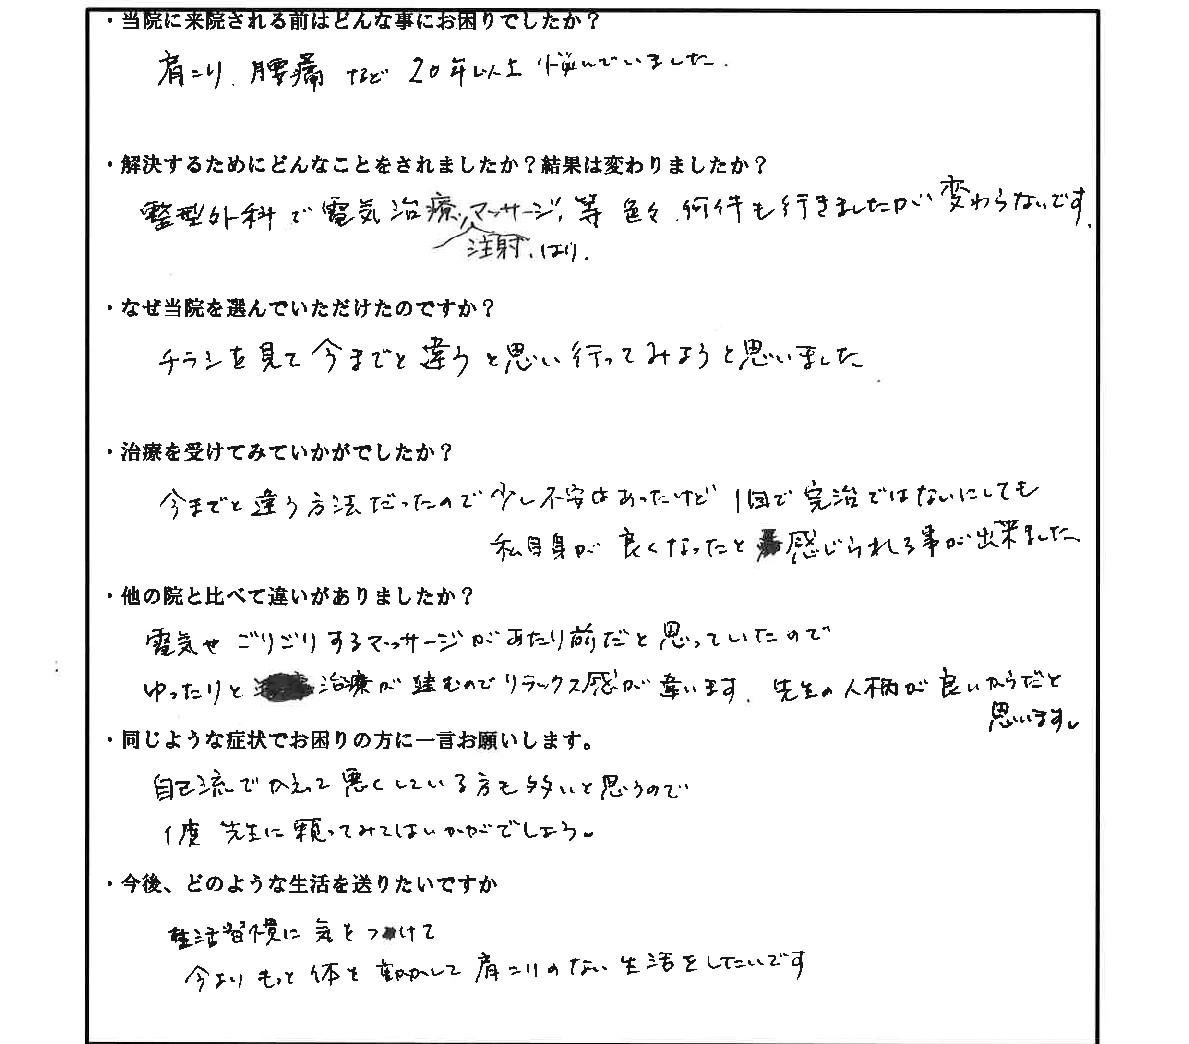 ・当院に来院される前はどんな事にお困りでしたか？
肩こり、腰痛 など 20年以上 悩んでいました．
・解決するためにどんなことをされましたか？結果は変わりましたか？
整型外科で電気治療、マッサージ、等 色々．何件も行きましたが変わらないです．
注射、はり．
・なぜ当院を選んでいただけたのですか？
チラシを見て今までと違うと思い行ってみようと思いました
・治療を受けてみていかがでしたか？
今までと違う方法だったので少し不安はあったけど 1回で完治ではないにしても
私自身が良くなったと感じられる事が出来ました
・他の院と比べて違いがありましたか？
電気や ごりごりするマッサージがあたり前だと思っていたので
ゆったりと治療が進むのでリラックス感が違います．先生の人柄が良いからだと
思います。
・同じような症状でお困りの方に一言お願いします。
自己流でかえって悪くしている方も多いと思うので
1度 先生に頼ってみてはいかがでしょう。
・今後、どのような生活を送りたいですか
生活習慣に気をつけて
今よりもっと体を動かして肩こりのない生活をしたいです